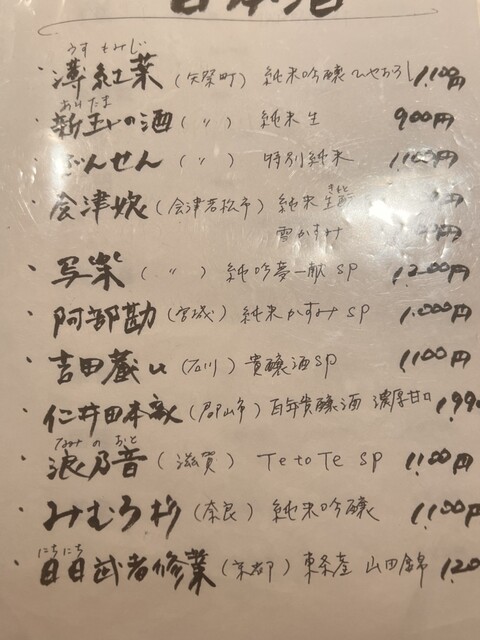 日本酒
うす もみじ
・薄紅葉（矢祭町）純米吟醸 ひやおろし 1,100円
あらたま
・新玉の酒（〃）純米生 900円
・ぶんせん（〃）特別純米 1,100円
きもと
・会津娘（会津若松市）純米 生酛 円
雪かすみ 円
・写楽（〃）純吟夢一献 SP 1,200円
・阿部勘（宮城）純米かすみ SP 1,000円
・吉田蔵u（石川）貴醸酒 SP 1,100円
・仁井田本家（郡山市）百年貴醸酒 濃厚甘口 1,99
なみ の おと
・浪乃音（滋賀）Te to Te SP 1,100円
・みむろ杉（奈良）純米吟醸 1,100円
にち にち
・日日武者修業（京都）東条産 山田錦 1,20